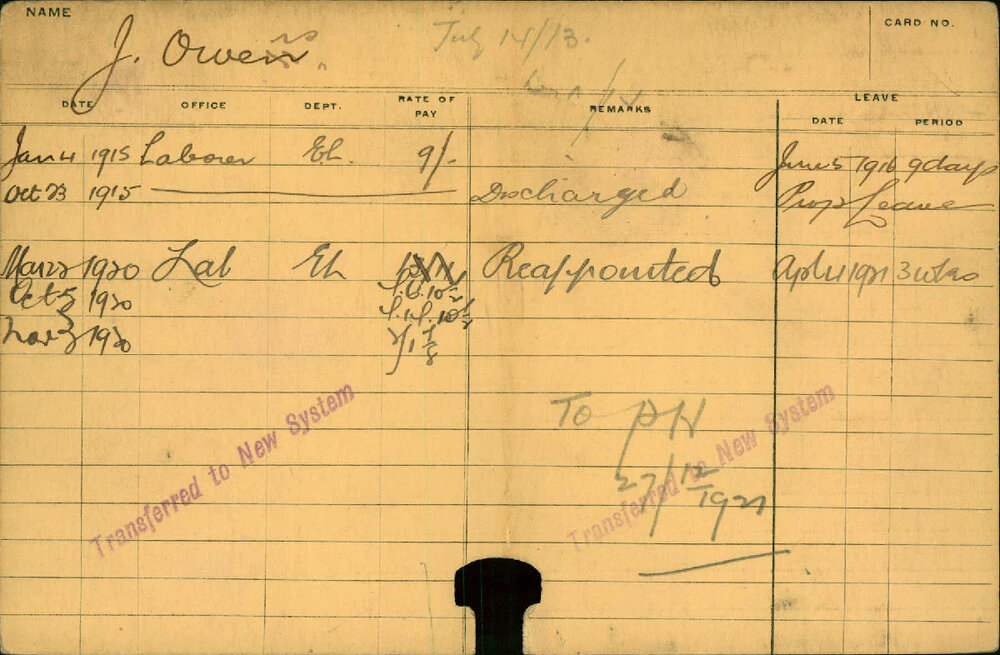 NAME
CARD NO.
J. Owens
July 14/13.
DATE OFFICE DEPT. RATE OF PAY REMARKS LEAVE
DATE PERIOD
Jan 4 1915 Laborer El. 9/- June 5 1916 9 days
Oct 23 1915 Discharged Prop Leave
1920 Lab El Reappointed 1921 3 wks
Oct 5 1920
Nov 3 1920
To PH
27/12
1921
Transferred to New System
Transferred to New System